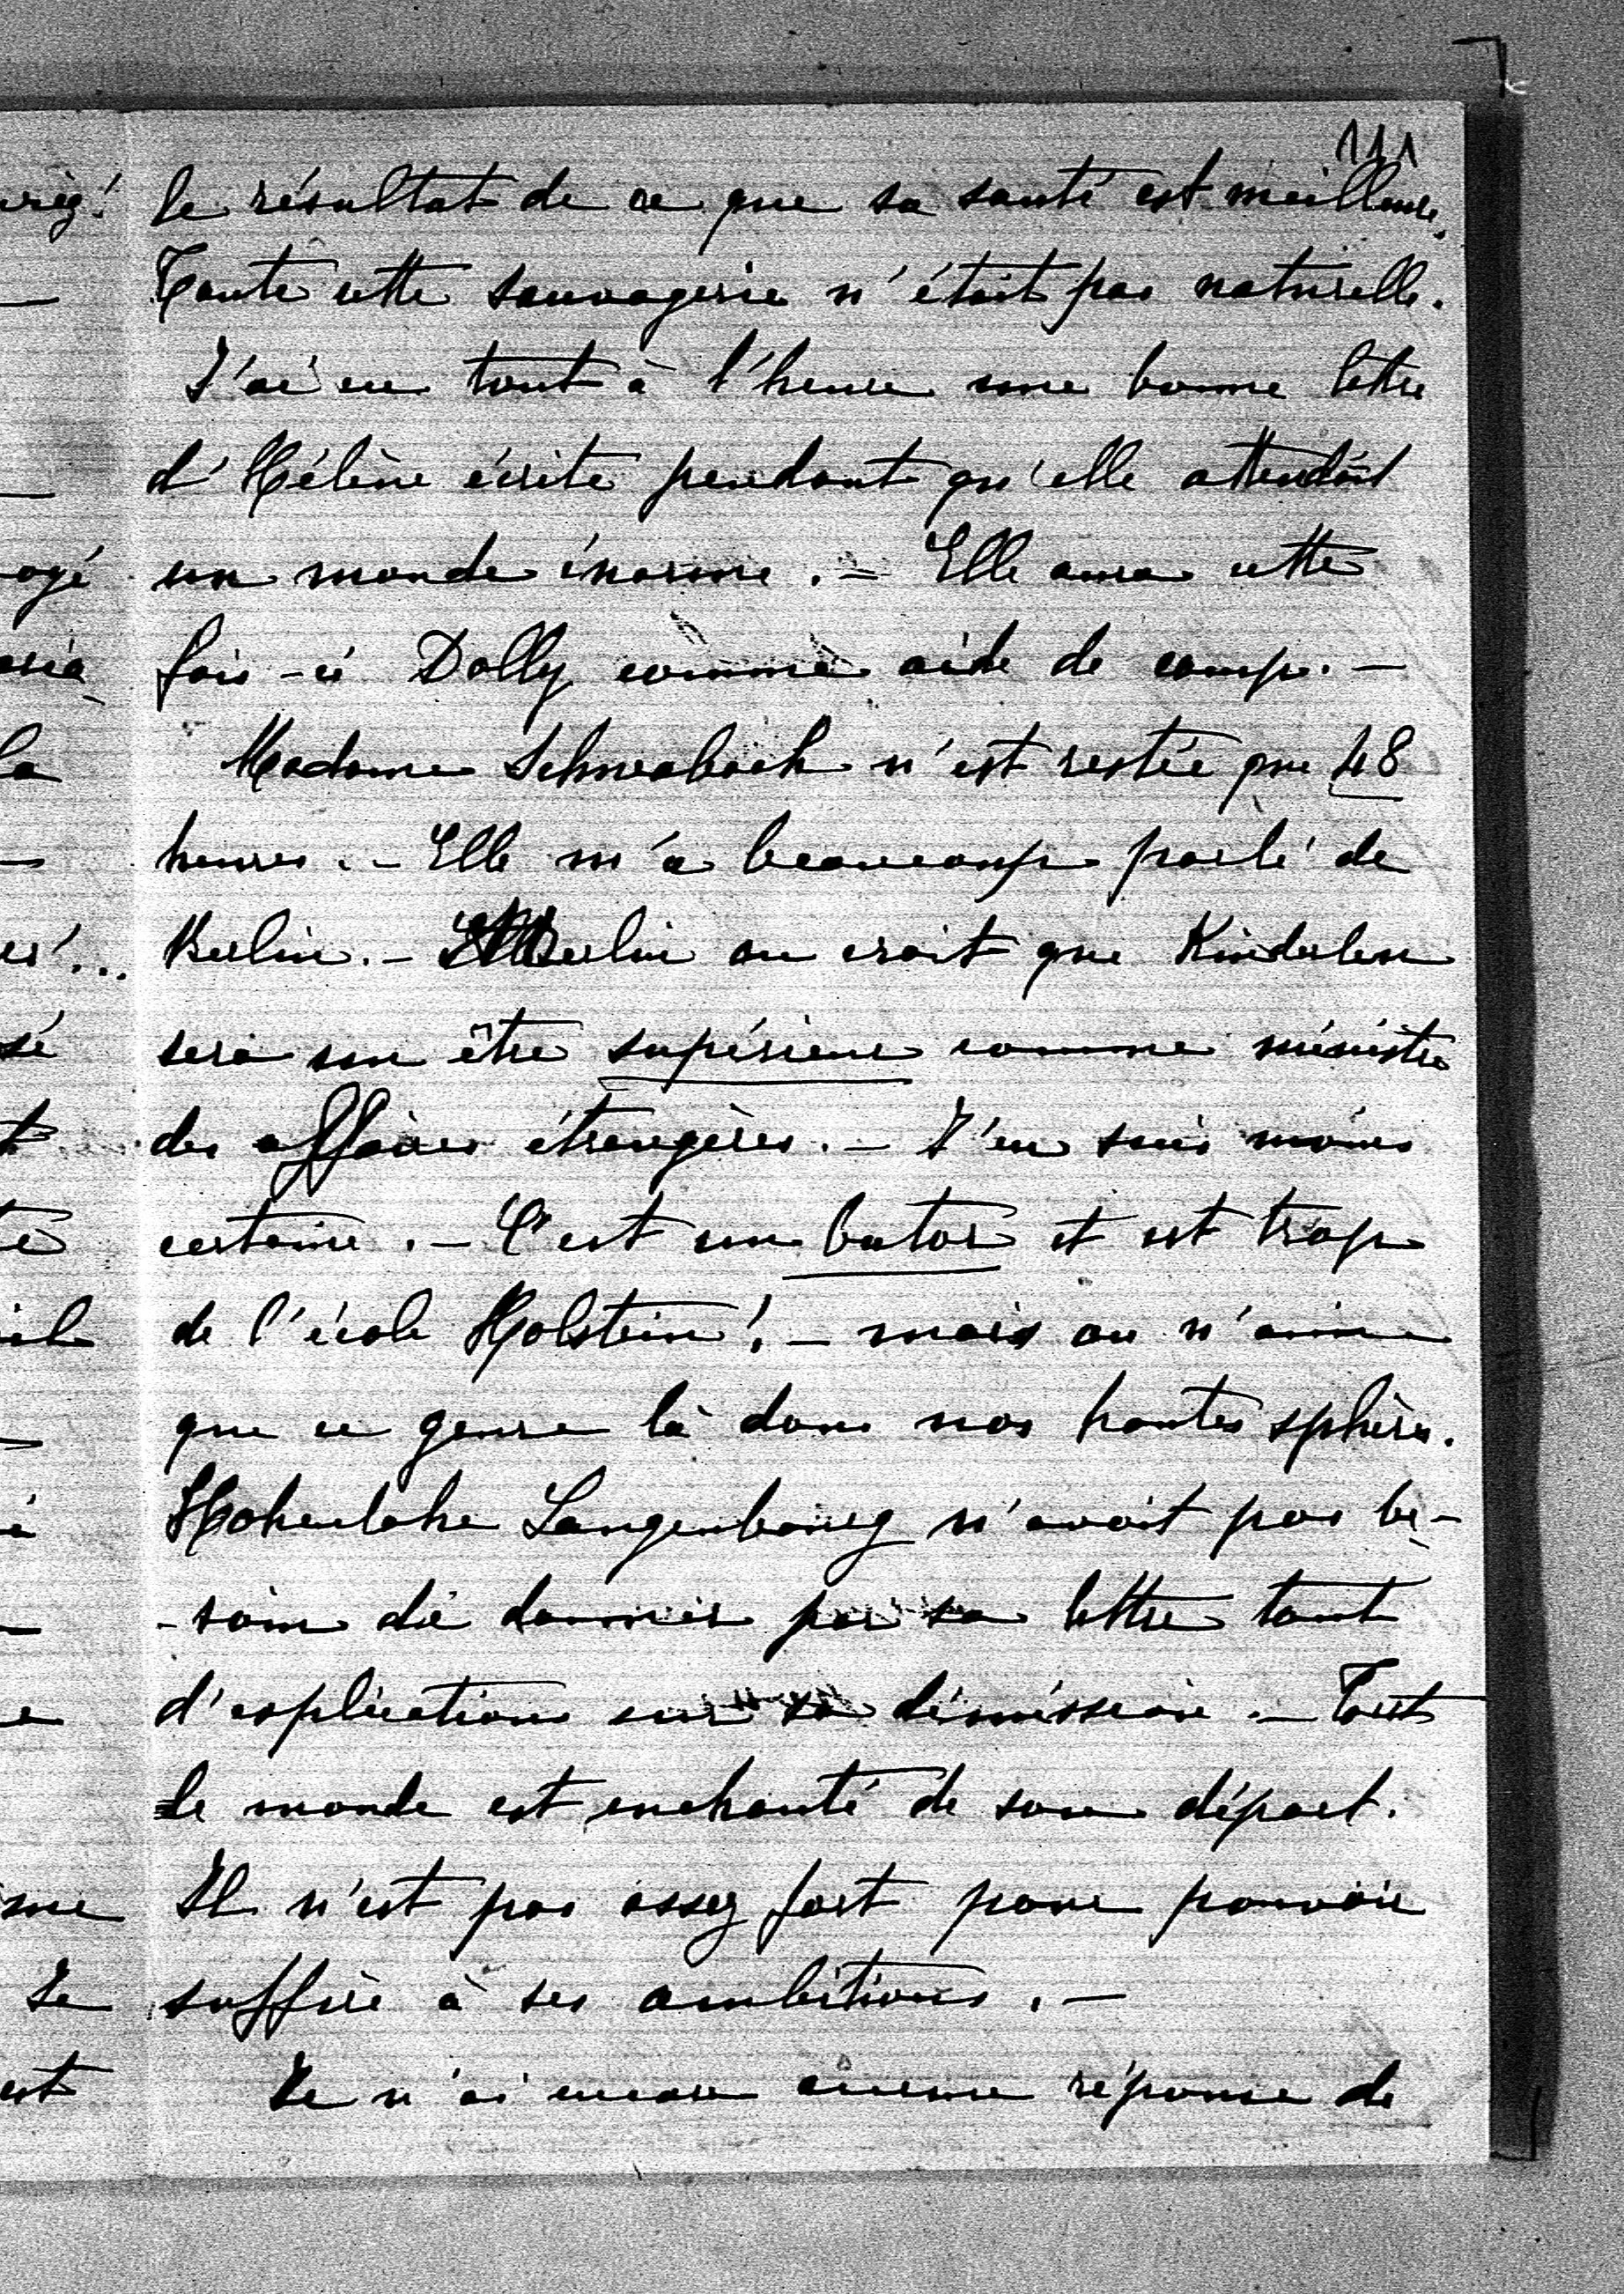 111
le résultat de ce que sa santé est meilleure.
Toute cette sauvagerie n'était pas naturelle.
J'ai eu tout à l'heure une bonne lettre
d'Hélène écrite pendant qu'elle attendait
un monde énorme. – Elle aura cette
fois-ci Dolly comme aide de camp. –
Madame Schwabach n'est restée que 48
heures. – Elle m'a beaucoup parlé de
Berlin. – Berlin on croit que Kinderlen
sera un être supérieur comme ministre
des affaires étrangères. – J'en suis moins
certaine. – C'est un butor et est trop
de l'école Holstein! – mais on n'aime
que ce genre là dans nos hautes sphères.
Hohenlohe Langenbourg n'avait pas be-
-soin de donner par sa lettre tant
d'explications sur sa démission. – Tout
le monde est enchanté de son départ.
Il n'est pas assez fort pour pouvoir
suffire à ses ambitions. –
Je n'ai encore aucune réponse de